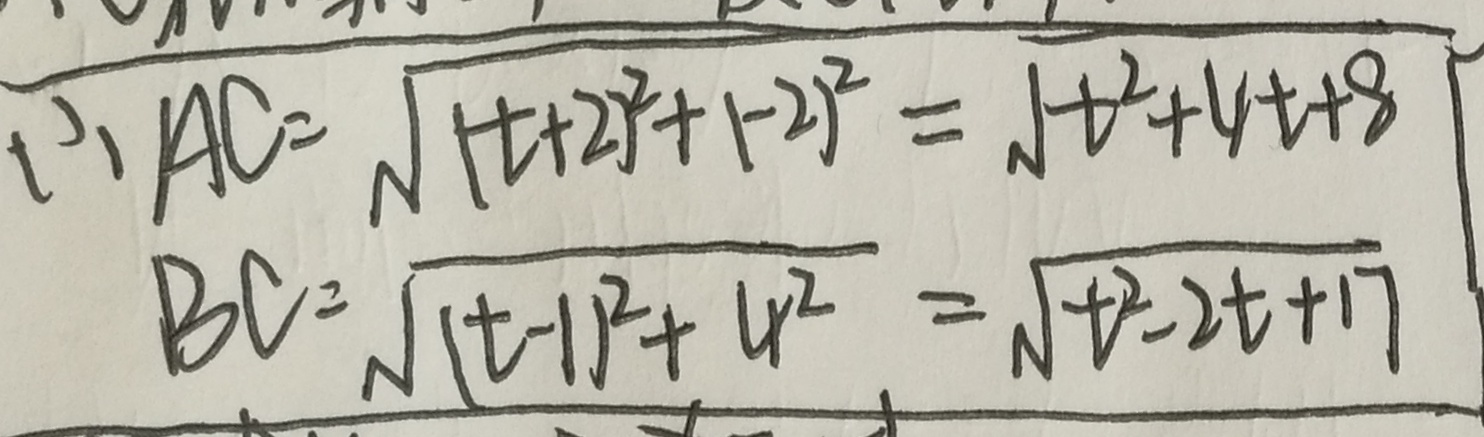 (2) AC = √((t+2)²+(-2)²) = √(t²+4t+8)
BC = √((t-1)²+4²) = √(t²-2t+17)